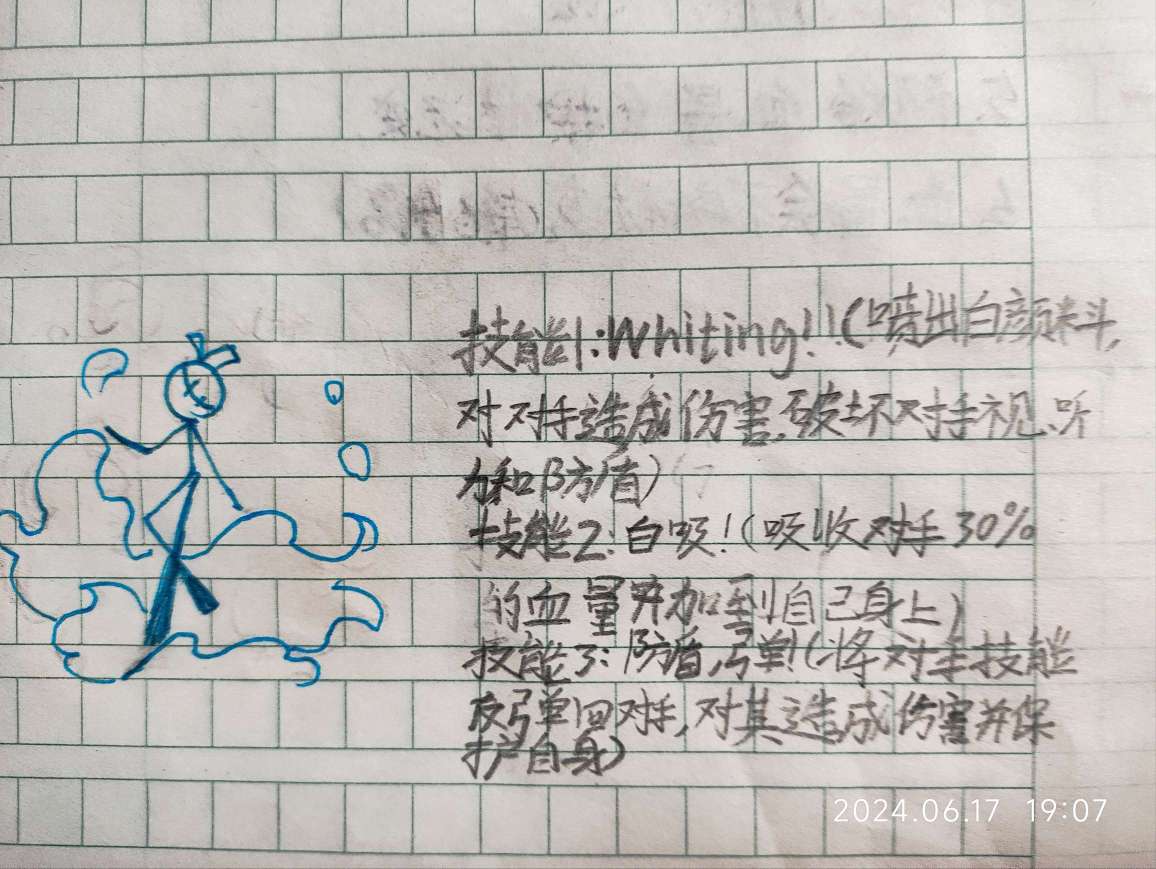 技能1:Whiting!!(喷出白颜料,
对对手造成伤害,破坏对手视、听
力和防盾)
技能2:白吸!(吸收对手30%
的血量并加到自己身上)
技能3:防盾,弹!(将对手技能
反弹回对手,对其造成伤害并保
护自身)
2024.06.17 19:07